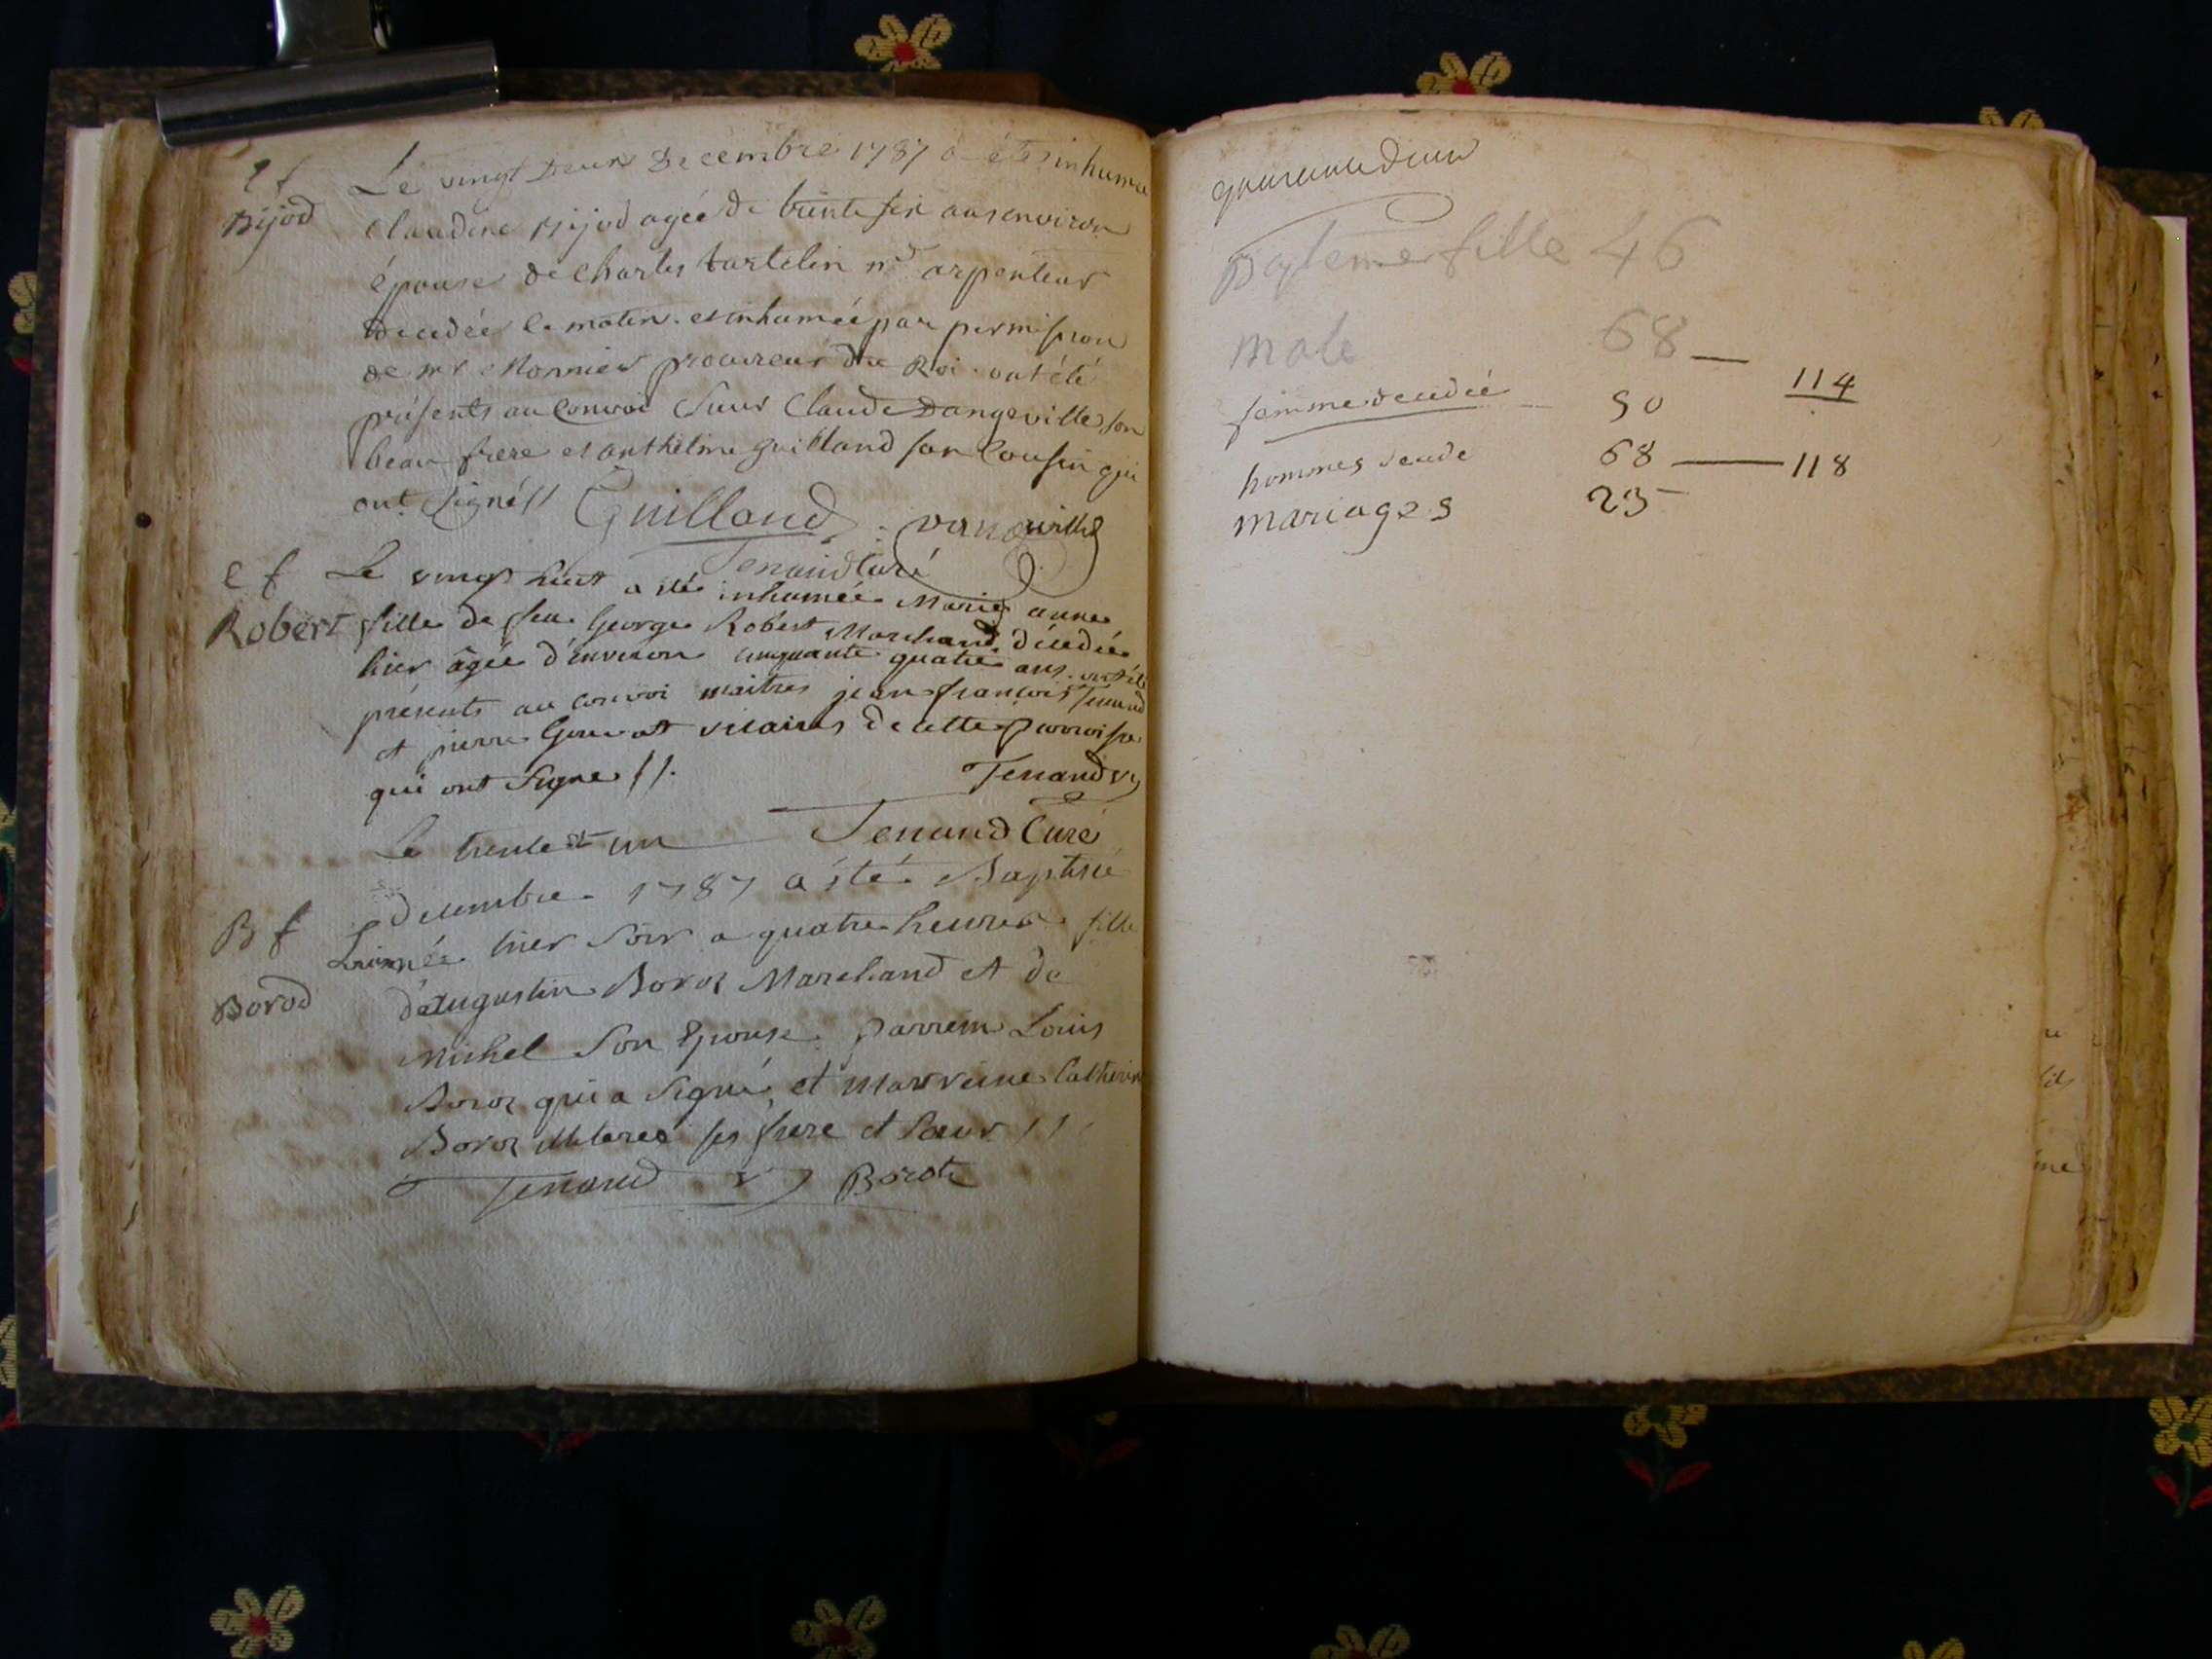 e f
Bijod
Le vingt Deux Decembre 1787 a été inhumée
Claudine Bijod agée de trente six ans environ
épouse de Charles tartelin md arpenteur
decedée le matin et inhumée par permission
de mr Monnier procureur du Roi ont été
présents au Convoi Sieur Claude Dangeville son
beau frere et anthelme guilland son Cousin qui
ont signés //
Guilland
Tenand Curé
e f
Robert
Le vingt huit a été inhumée Marie anne
fille de feu George Robert Marchand décédée
hier âgée d'environ cinquante quatre ans ont été
présents au convoi maitres jean françois Tenand
et pierre vicaires de cette parroisse
qui ont Signé //.
Tenand v
Tenand Curé
B f
Borod
Le trente et un
décembre 1787 a été Baptisée
hier Soir a quatre heures fille
d'augustin Boroz Marchand et de
Michel Son Epouse parrein Louis
Boroz qui a Signé, et Marreine Catherine
Boroz illiteree ses frere et Sœur //
Tenand v Boroz
fille 46
male 68 —
114
femme decedée 50
hommes decede 68 — 118
mariages 23